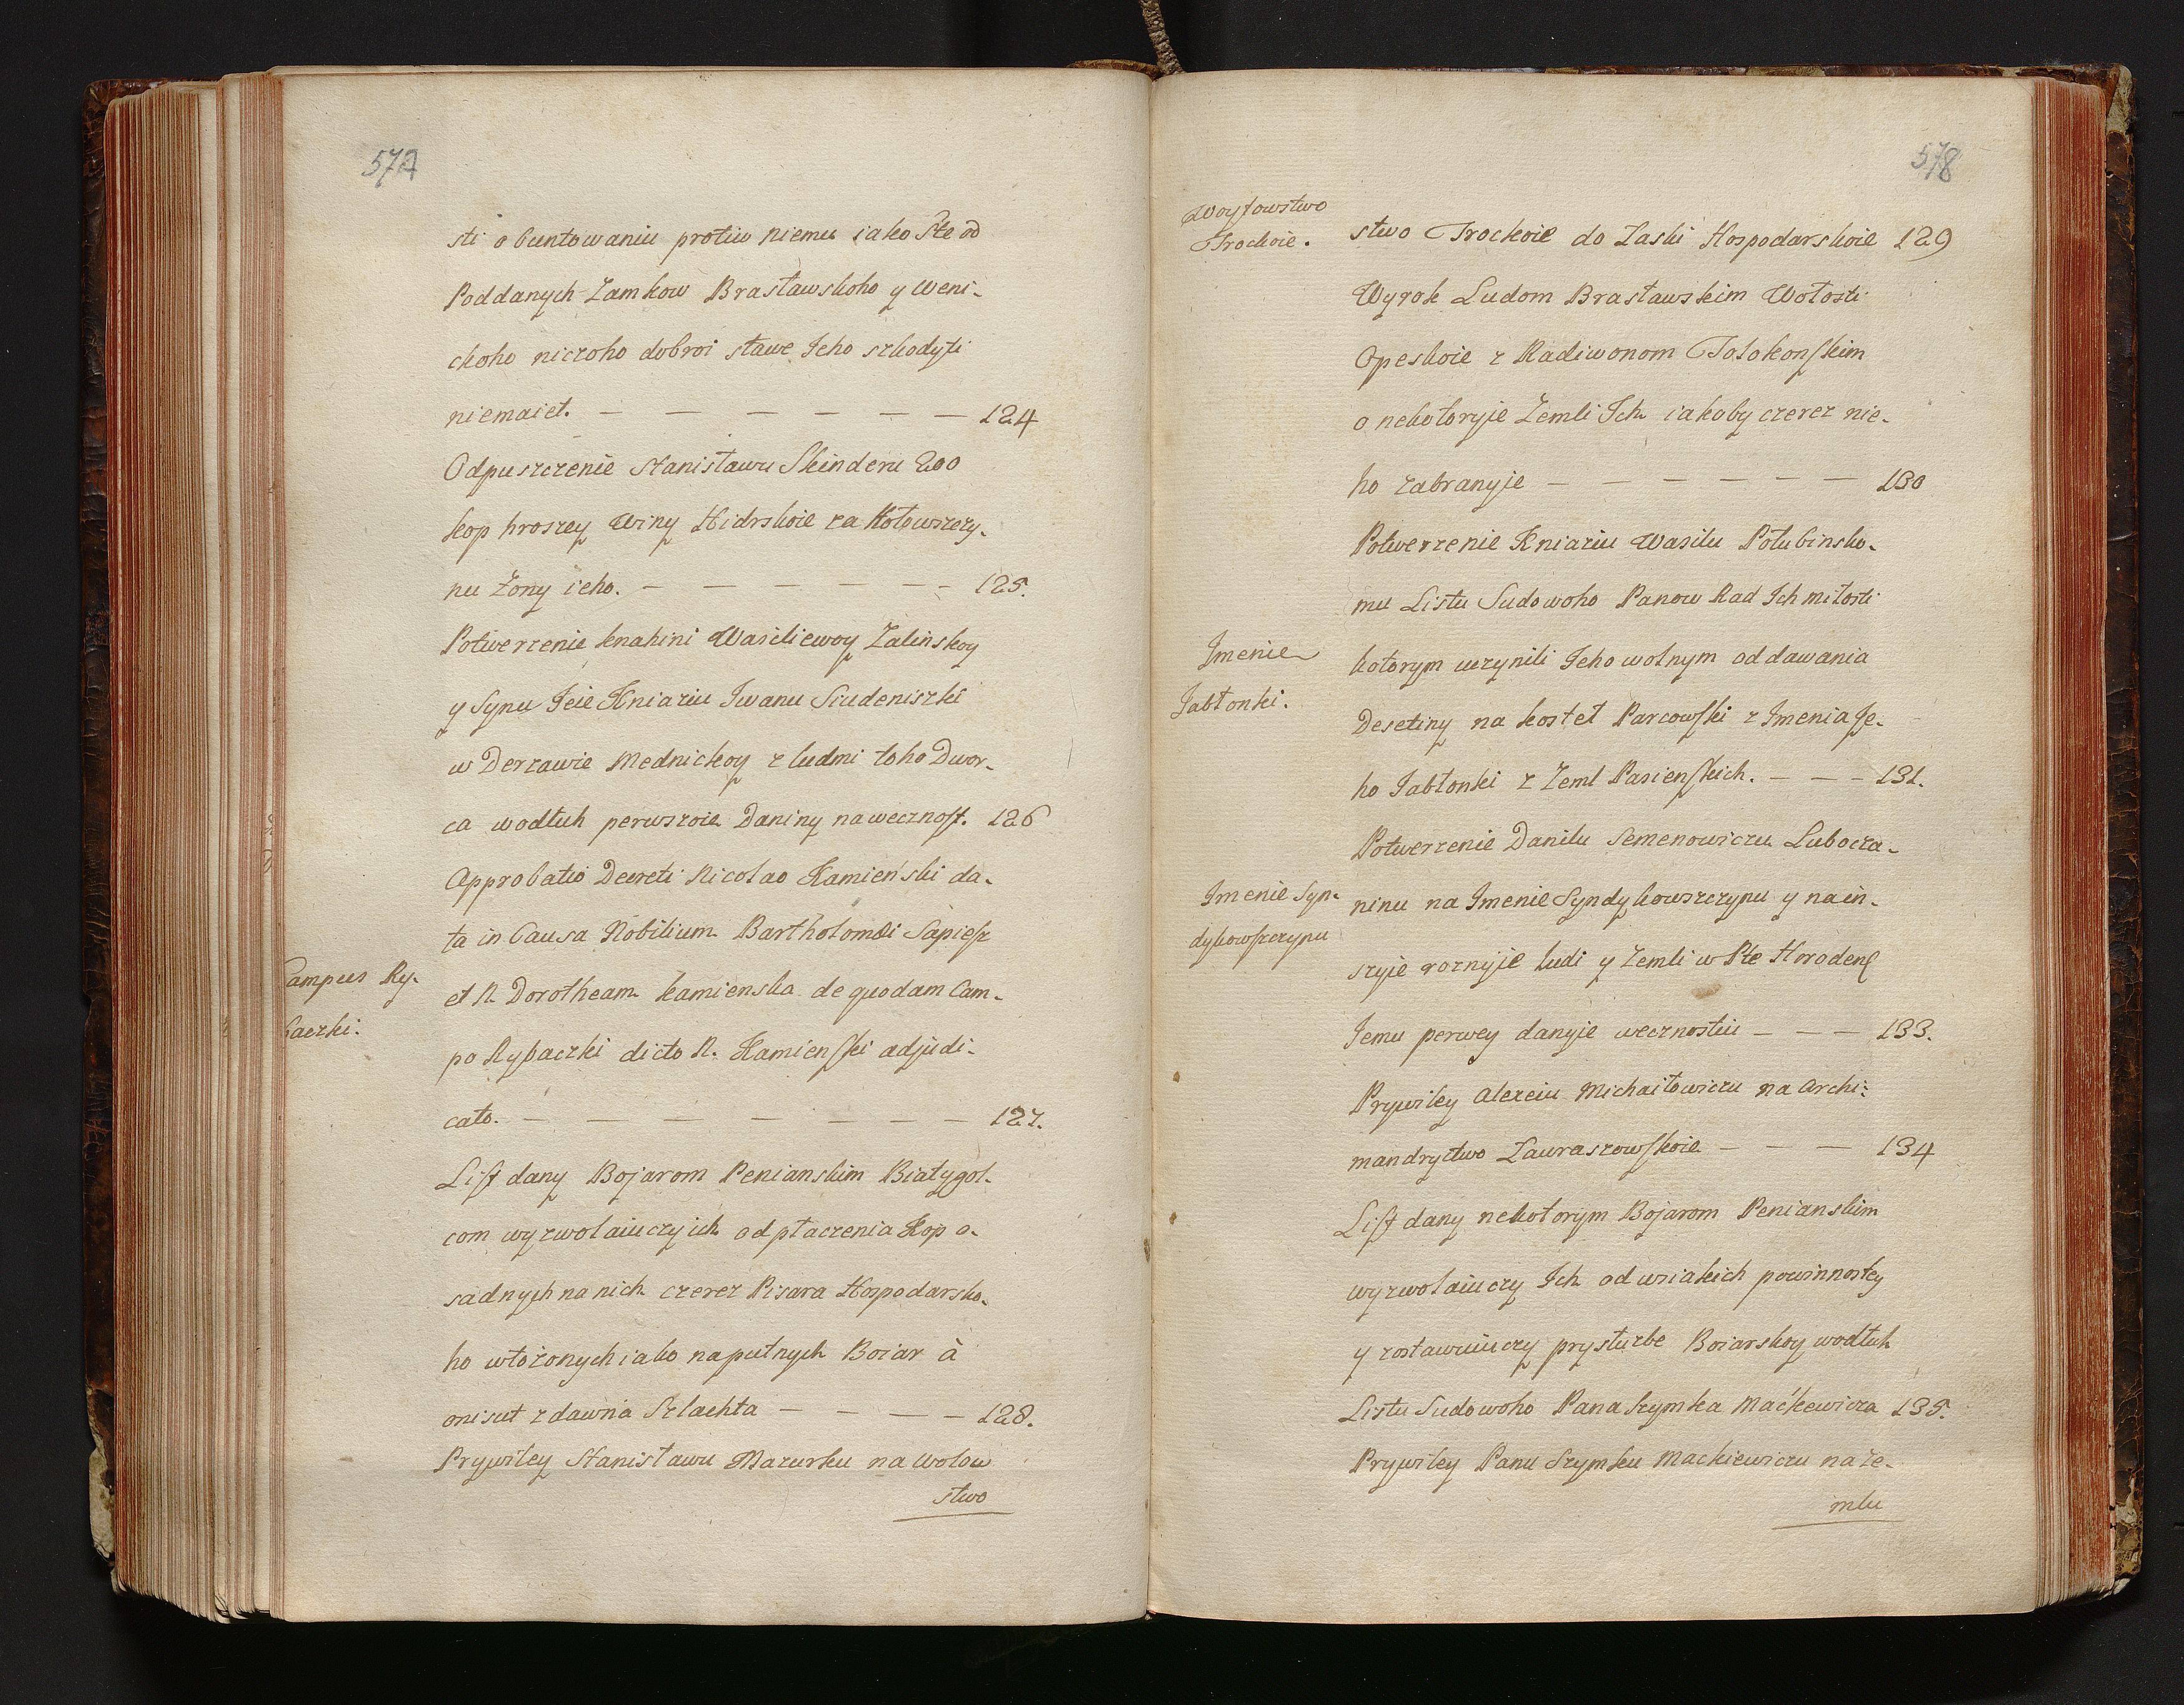 577
sti o buntowaniu protiw niemu iako Ste od
Poddanych Zamkow Brasławskoho y Weni-
ckoho niczoho dobroi sławe Jeho szkodyti
niemaiet. — — — — — — 124
Odpuszczenie Stanisławu Skinderu 200
kop hroszey Winy Hidrskoie za Hołowszczy-
nu Żony ieho. — — — — — — 125.
Potwerzenie knahini Wasiliewoy Zalinskoy
y Synu Jeie Kniaziu Iwanu Siudeniszki
w Derzawie Mednickoy z ludmi toho Dwor-
ca wodłuh perwszoie Daniny na wecznost. 126
Approbatio Decreti Nicolao Kamieński da-
ta in Causa Nobilium Bartholomæi Sapiesz
Campus Ry-
baczki.
et N. Dorotheam Kamienska de quodam Cam-
po Rybaczki dicto N. Kamienski adjudi-
cato. — — — — — — — 127.
List dany Bojarom Penianskim Białygol-
com wyzwolaiuczy ich od płaczenia Kop o-
sadnych na nich czerez Pisara Hospodarsko-
ho włożonych iako na putnych Boiar à
oni sut z dawna Szlachta — — — — 128.
Prywiley Stanisławu Mazurku na Wotow
stwo
578
Woytowstwo
Trockoie.
stwo Trockoie do Łaski Hospodarskoie 129
Wyrok Ludom Brasławskim Wołosti
Opeskoie z Radiwonom Tołokonskim
o nekotoryje Zemli Ich iakoby czerez nie-
ho zabranyje — — — — — — 130
Potwerzenie Kniaziu Wasilu Połubinsko-
mu Listu Sudowoho Panow Rad Ich miłosti
Imenie
Jabłonki.
kotorym uczynili Jeho wolnym od dawania
Desetiny na kosteł Parcowski z Imenia Je-
ho Jabłonki z Zeml Pasienskich. — — — 131.
Potwerzenie Danilu Semenowiczu Lubocza-
Imenie Syn-
dykowszczynu
ninu na Imenie Syndykowszczynu y na in-
szyie roznyje ludi y Zemli w Pte Horoden
Jemu perwey danyje wecznostiu — — — 133.
Prywiley Alexeiu Michaiłowiczu na Archi-
mandryctwo Ławraszowskoie — — — 134
List dany nekotorym Bojarom Penianskim
wyzwolaiuczy Ich od wsiakich powinnostey
y zostawuiuczy pry służbe Boiarskoy wodłuh
Listu Sudowoho Pana Szymka Maćkewicza 135.
Prywiley Panu Szymku Mackiewiczu na Ze-
mlu